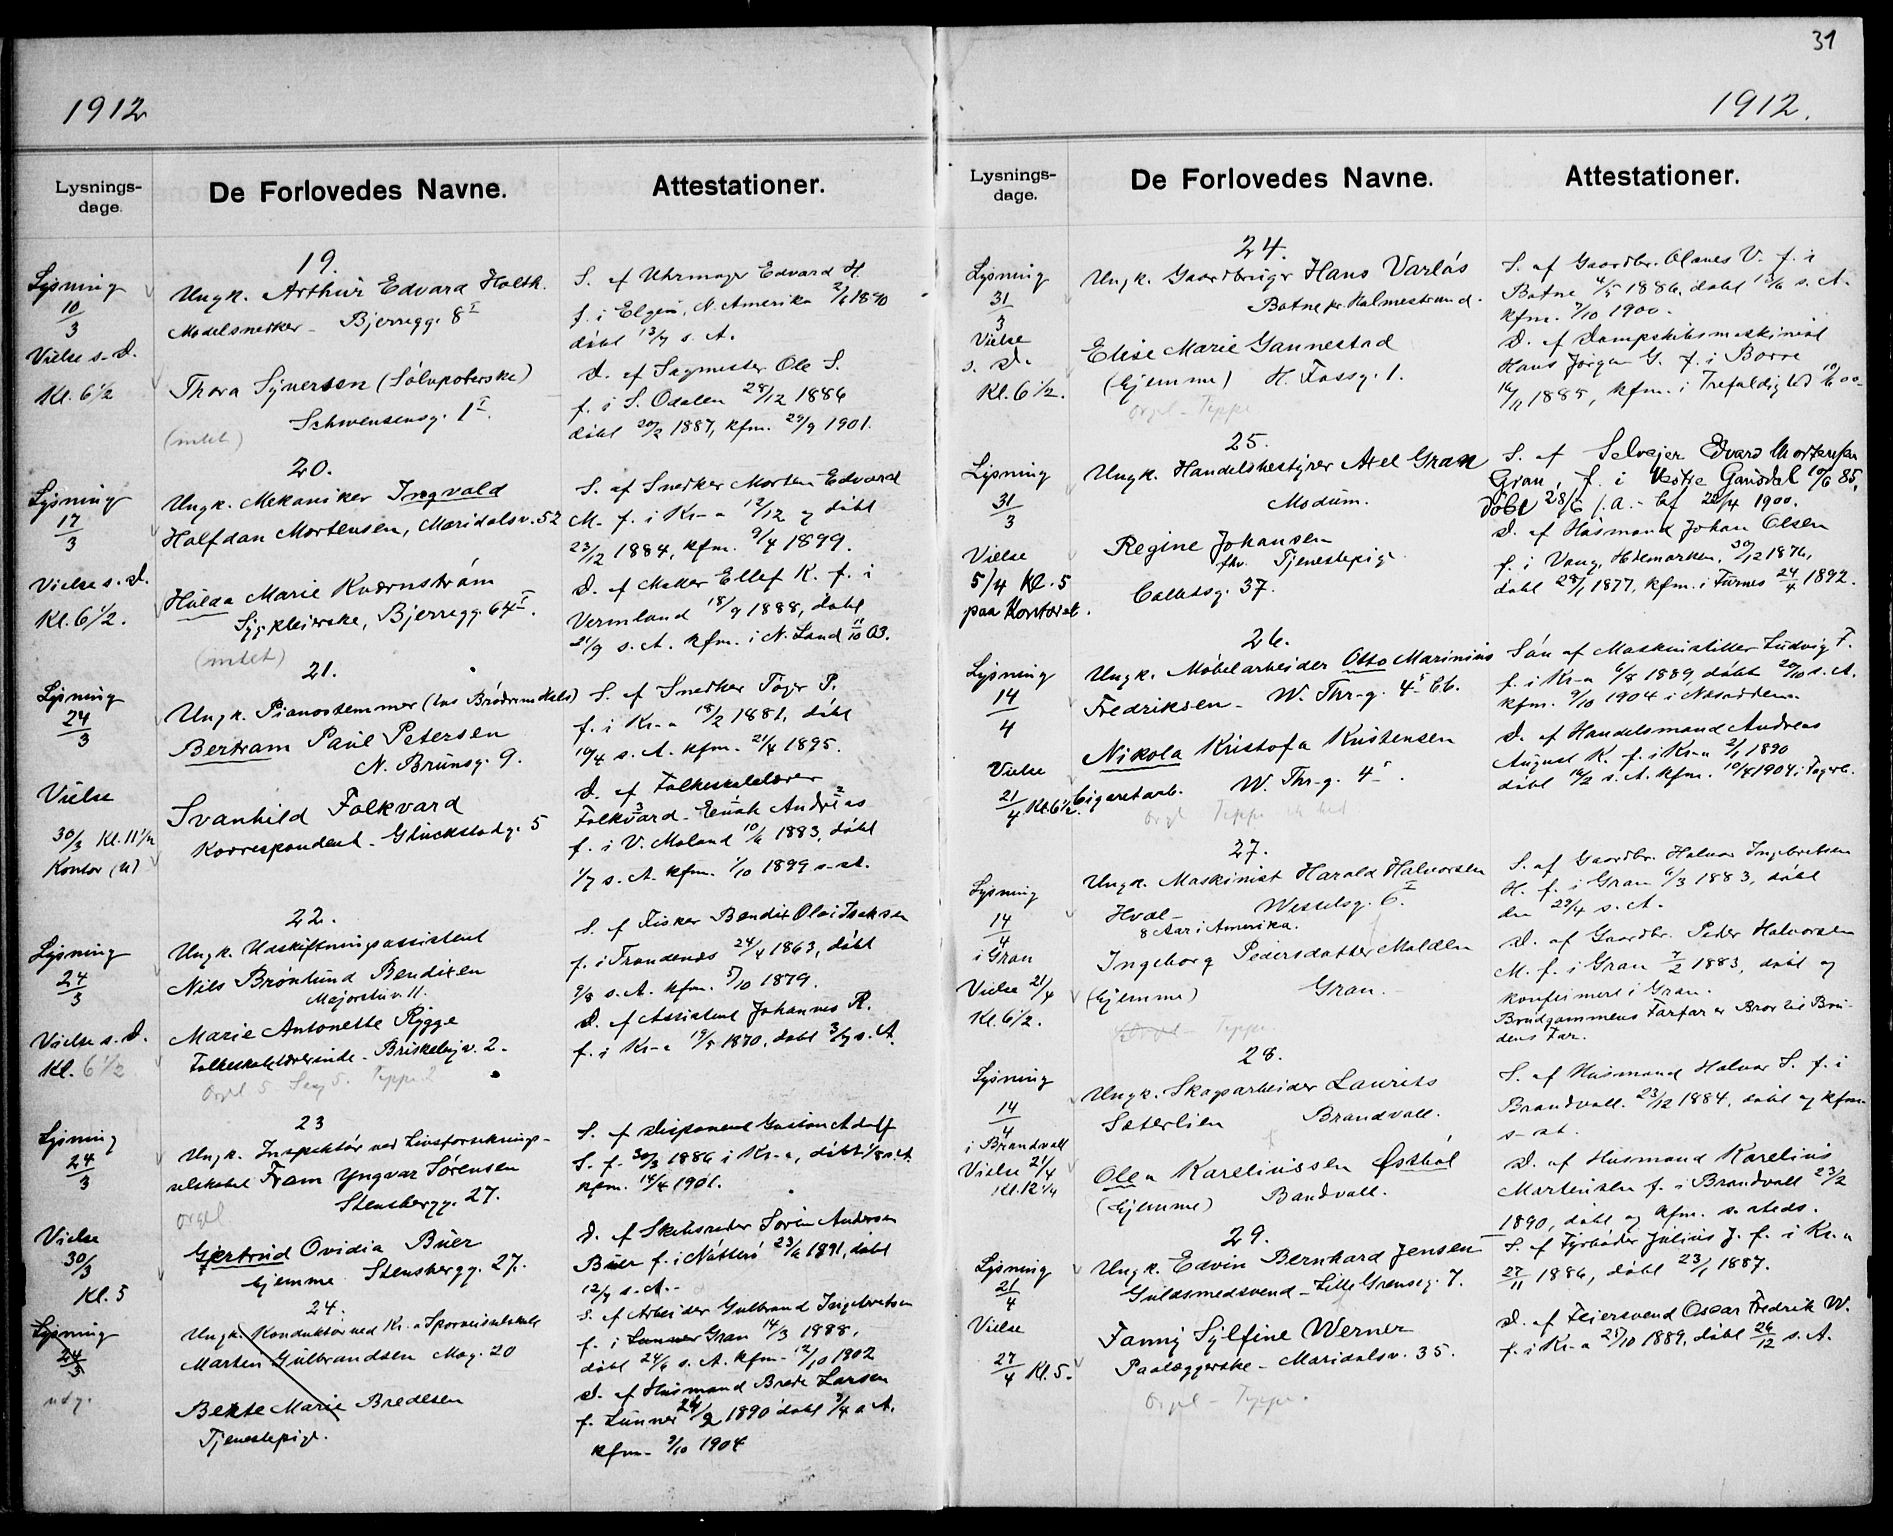 31
1912
Lysnings-
dage.
De Forlovedes Navne.
Attestationer.
19.
Lysning
10/3
Vielse s. D.
Kl. 6 1/2
Ungk. Arthur Edvard Holth.
Modelsnedker - Bjerregg. 8 I
Thora Syversen (Sølvpolerske)
Schwensensg. 1 I
(intet)
S. af Uhrmager Edvard H.
f. i Elgin, N. Amerika
døbt 13/7 s. A.
D. af Sagmester Ole S.
f. i S. Odalen 28/12 1886
døbt 20/2 1887, kfm. 29/9 1901.
20.
Lysning
17/3
Vielse s. D.
Kl. 6 1/2.
Ungk. Mekaniker Ingvald
Halfdan Mortensen, Maridalsv. 52
Hulda Marie Kvernstrøm
Sypleierske, Bjerregg. 64 I.
(intet)
S. af Snedker Morten Edvard
M. f. i Kr-a 12/12 og døbt
23/12 1884, kfm. 9/4 1899.
D. af Møller Ellef K. f. i
Vermland 18/9 1888, døbt
21/9 s. A. kfm. i N. Land 11/10 03.
21.
Lysning
24/3
Vielse
30/3 Kl. 11 1/2
Kontor (u)
Ungk. Pianostemmer (hos Brødrene Hals)
Bertram Paul Petersen
N. Brunsg. 9.
Svanhild Folkvard
Korrespondent - Glückstadg. 5
S. af Snedker Toger P.
f. i Kr-a 18/2 1881, døbt
10/4 s. A. kfm. 21/4 1895.
D. af Folkeskolelærer
Folkvard - Enok Andreas
f. i V. Moland 10/6 1883, døbt
1/7 s. A. kfm. 1/10 1899 s. st.
22.
Lysning
24/3
Vielse s. D.
Kl. 6 1/2
Ungk. Udskiftningsassistent
Nils Brønlund Bendixen
Majorstuv. 11.
Marie Antonette Rygge
Folkeskolelærerinde - Briskebyv. 2.
Orgel 5. Sang 5. Teppe 2
S. af Fisker Bendix Olai Isaksen
f. i Trondenes 24/4 1863, døbt
9/8 s. A. kfm. 5/10 1879.
D. af Assistent Johannes R.
f. i Kr-a 19/5 1870, døbt 3/7 s. A.
23
Lysning
24/3
Vielse
30/3
Kl. 5
Ungk. Inspektør ved Livsforsikrings-
selskabet Fram Yngvar Sørensen
Stensbergg. 27.
Orgel
Gjertrud Ovidia Buer
hjemme Stensbergg. 27.
S. af Disponent Gustav Adolf
S. f. 30/3 1886 i Kr-a, døbt 1/8 s. A.
kfm. 14/4 1901.
D. af Skibsreder Søren Andersen
Buer f. i Nøtterø 23/6 1891, døbt
12/7 s. A.-
24.
Lysning
24/3
udg.
Ungk. Konduktør ved Kr.a Sporveisselskab
Marten Gulbrandsen Mag. 20
Berte Marie Bredesen
Tjenestepige.
S. af Arbeider Gulbrand Ingebretsen
f. i Lunner Gran 14/3 1888,
døbt 24/6 s. A. kfm. 12/10 1902
D. af Husmand Brede Larsen
f. Lunner 24/2 1890 døbt 7/4 s. A.
kfm. 9/10 1904
1912.
Lysnings-
dage.
De Forlovedes Navne.
Attestationer.
24.
Lysning
31/3
Vielse
s. D.
Kl. 6 1/2.
Ungk. Gaardbruger Hans Varløs
Botne pr. Holmestrand.
Elise Marie Gannestad
(hjemme) H. Fossg. 1.
Orgel - Teppe
S. af Gaardbr. Olaves V. f. i
Botne 4/5 1886, døbt 14/6 s. A.
kfm. 7/10 1900.
D. af Dampskibsmaskinist
Hans Jørgen G. f. i Borre
16/11 1885, kfm. i Trefoldighed
25.
Lysning
31/3
Vielse
5/4 Kl. 5
paa Kontoret.
Ungk. Handelsbestyrer Axel Gran
Modum.
Regine Johansen
fhv. Tjenestepige
Calletsg. 37.
S. af Selveier Edvard Mortensen
Gran, f. i Vestre Gausdal 10/6 85,
døbt 28/6 s. a. - kf 22/4 1900.
D. af Husmand Johan Olsen
f. i Vang, Hedemarken, 30/12 1876,
døbt 28/1 1877, kfm. i Furnes 24/4 1892.
26.
Lysning
14/4
Vielse
21/4 Kl. 6 1/2
Ungk. Møbelarbeider Otto Marinius
Fredriksen - W. Thr-g. 4 I b.
Nikola Kristofa Kristensen
Cigaretarb. W. Thr-g. 4 I.
Orgel Teppe
Søn af Maskinsliter Ludvig F.
f. i Kr-a 6/8 1889, døbt 20/10 s. A.
kfm. 9/10 1904 i Nesodden.
D. af Handelsmand Andreas
August K. f. i Kr-a 2/1 1890
døbt 16/2 s. A. kfm. 10/4 1904 i Fagerb.
27.
Lysning
14/4
i Gran
Vielse 21/4
Kl. 6 1/2.
Ungk. Maskinist Harald Halvorsen
Hval - Wesselsg. 6 I.
8 Aar i Amerika.
Ingeborg Pedersdatter Molden
(hjemme) Gran.
Orgel - Teppe.
S. af Gaardbr. Halvor Ingebretsen
H. f. i Gran 6/3 1883, døbt
den 29/4 s. A.
D. af Gaardbr. Peder Halvorsen
M. f. i Gran 7/2 1883, døbt og
konfirmert i Gran.
Brudgommens Farfar er Bror til Bru-
dens Far.
28.
Lysning
14/4
i Brandvall
Vielse 21/4
Kl. 12 1/4
Ungk. Skogsarbeider Laurits
Sæterlien Brandvall.
Olea Kareliussen Østhol
(hjemme) Bandvall.
S. af Husmand Halvor S. f. i
Brandvall. 23/12 1884, døbt og kfm.
s. st.
D. af Husmand Karelius
Martinsen f. i Brandvall 23/2
1890, døbt og kfm. s. steds.
29.
Lysning
21/4
Vielse
27/4 Kl. 5.
Ungk. Edvin Bernhard Jensen
Guldsmedsvend - Lille Grensg. 7.
Fanny Sylfine Werner
Paalæggerske - Maridalsv. 35.
Orgel - Teppe.
S. af Fyrbøder Julius J. f. i Kr.a
27/11 1886, døbt 23/1 1887.
D. af Feiersvend Oscar Fredrik W.
f. i Kr-a 25/10 1889, døbt 26/12 s. A.